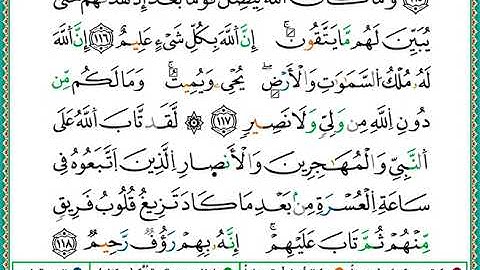 وَمَا كَانَ اللَّهُ لِيُضِلَّ قَوْمًا بَعْدَ إِذْ هَدَاهُمْ حَتَّىٰ
يُبَيِّنَ لَهُم مَّا يَتَّقُونَ ۚ إِنَّ اللَّهَ بِكُلِّ شَيْءٍ عَلِيمٌ ﴿١١٦﴾ إِنَّ اللَّهَ
لَهُ مُلْكُ السَّمَاوَاتِ وَالْأَرْضِ ۖ يُحْيِي وَيُمِيتُ ۚ وَمَا لَكُم مِّن
دُونِ اللَّهِ مِن وَلِيٍّ وَلَا نَصِيرٍ ﴿١١٧﴾ ۞ لَّقَد تَّابَ اللَّهُ عَلَى
النَّبِيِّ وَالْمُهَاجِرِينَ وَالْأَنصَارِ الَّذِينَ اتَّبَعُوهُ فِي
سَاعَةِ الْعُسْرَةِ مِن بَعْدِ مَا كَادَ تَزِيغُ قُلُوبُ فَرِيقٍ
مِّنْهُمْ ثُمَّ تَابَ عَلَيْهِمْ ۚ إِنَّهُ بِهِمْ رَؤُفٌ رَّحِيمٌ ﴿١١٨﴾